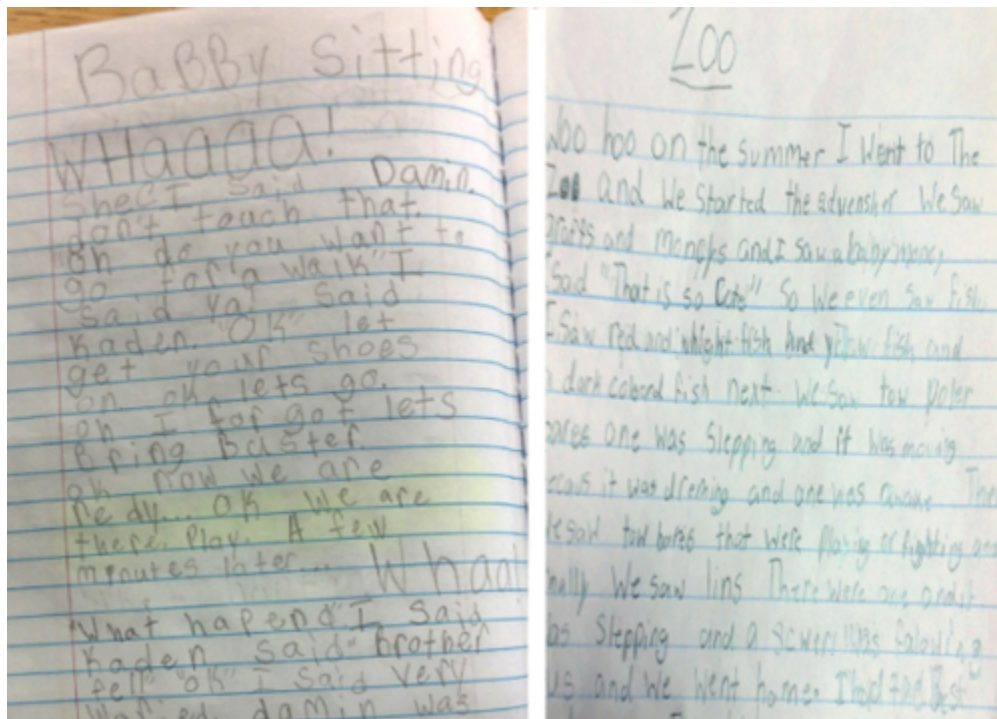 BaBBy Sitting
WHaaaa!
I Said Damin.
don't touch that.
oh do you want to
go for a walk" I
Said ya! Said
Kaden. "OK" let
get your shoes
on. ok lets go.
oh I for got lets
Bring Buster.
ok now we are
redy... OK We are
there. Play. A few
minutes later... Whaa
What hapend" I Said
Kaden Said" brother
fell" "OK" I Said Very
damin was
Zoo
Woo hoo on the summer I Went to The
Zoo and We Started the advensher We Saw
and and I saw a baby
I Said "That is so Cute" So We even Saw fish.
I Saw red and whight fish and yllow fish and
dark colored fish next We Saw tow Poler
bares one was Slepping and it was moving
it was dreming and one was The
We saw tow bares that were Playing or fighting and
We Saw lins There Were one and it
Was Slepping and a Was falowing
us and We Went home. I had the Best